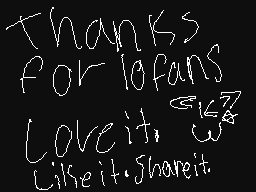 Thanks
for 10 fans
Love it.
Like it. Share it.